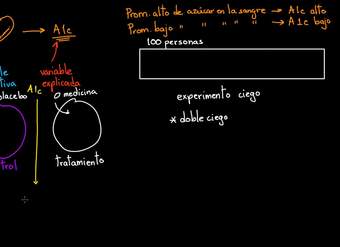 Prom. alto de azúcar en la sangre → A1c alto
Prom. bajo " " " " " → A1c bajo
→ A1c
100 personas
variable
explicada
A1c
placebo
medicina
experimento ciego
* doble ciego
tratamiento